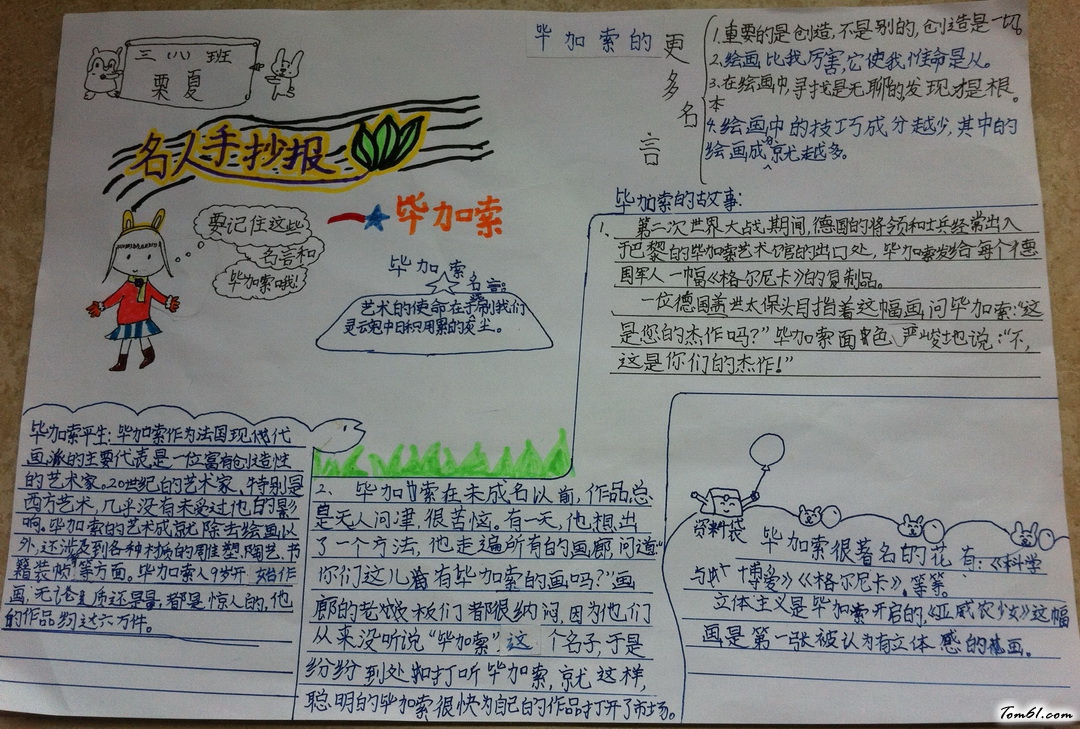 三（八）班
栗夏
名人手抄报
毕加索
要记住这些
名言和
毕加索哦!
毕加索
名言:
艺术的使命在于
我们
灵
中日积月累的灰尘。
毕加索的更多名言
1.重要的是创造,不是别的,创造是一切
2.绘画比我厉害,它使我惟命是从。
3.在绘画中,寻找是无聊的发现才是根
本。
4.绘画中的技巧成分越少,其中的
绘画成分就越多。
毕加索的故事:
1、第二次世界大战期间,德国的将领和士兵经常出入
于巴黎的毕加索艺术馆的出口处,毕加索发给每个德
国军人一幅《格尔尼卡》的复制品。
一位德国盖世太保头目指着这幅画问毕加索:“这
是您的杰作吗?”毕加索面色严峻地说:“不,
这是你们的杰作!”
毕加索平生:毕加索作为法国现代
画派的主要代表,是一位富有创造性
的艺术家。20世纪的艺术家、特别是
西方艺术,几乎没有未受过他的影
响。毕加索的艺术成就除去绘画以
外,还涉及到各种材质的雕塑、陶艺、书
籍装帧等方面。毕加索人9岁开始作
画,无论质还是量,都是惊人的,他
的作品约达六万件。
2、毕加索在未成名以前,作品总
是无人问津,很苦恼。有一天,他想出
了一个方法,他走遍所有的画廊,问道:“
你们这儿有毕加索的画吗?”画
廊的老板们都很纳闷,因为他们
从来没听说“毕加索”这个名子,于是
纷纷到处打听毕加索,就这样,
聪明的毕加索很快为自己的作品打开了市场。
资料袋
毕加索很著名的花有:《科学
与
博爱》《格尔尼卡》等等。
立体主义是毕加索开启的,《亚威农少女》这幅
画是第一张被认为有立体感的画。
Tom61.com